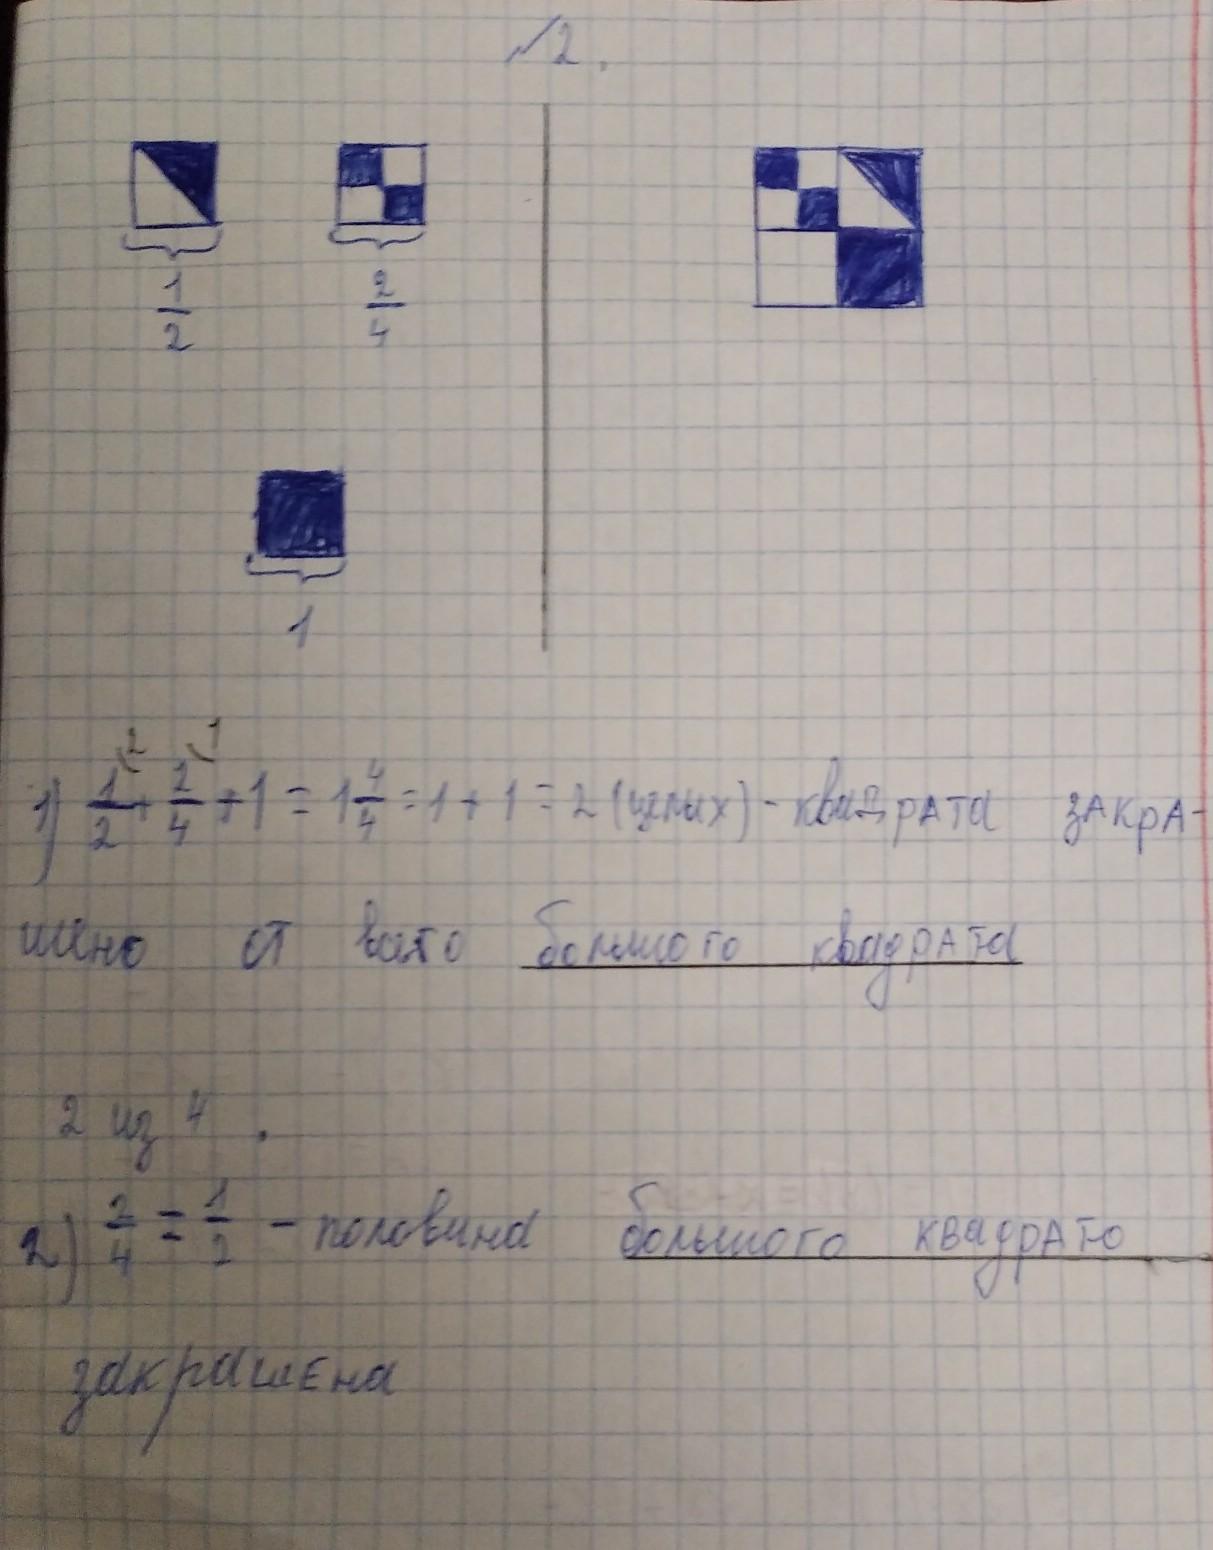 №2.
1/2 2/4
1
1) 1/2 + 2/4 + 1 = 1 4/4 = 1 + 1 = 2 (целых) - квадрата закра-
шено от всего большого квадрата
2 из 4.
2) 2/4 = 1/2 - половина большого квадрата
закрашена